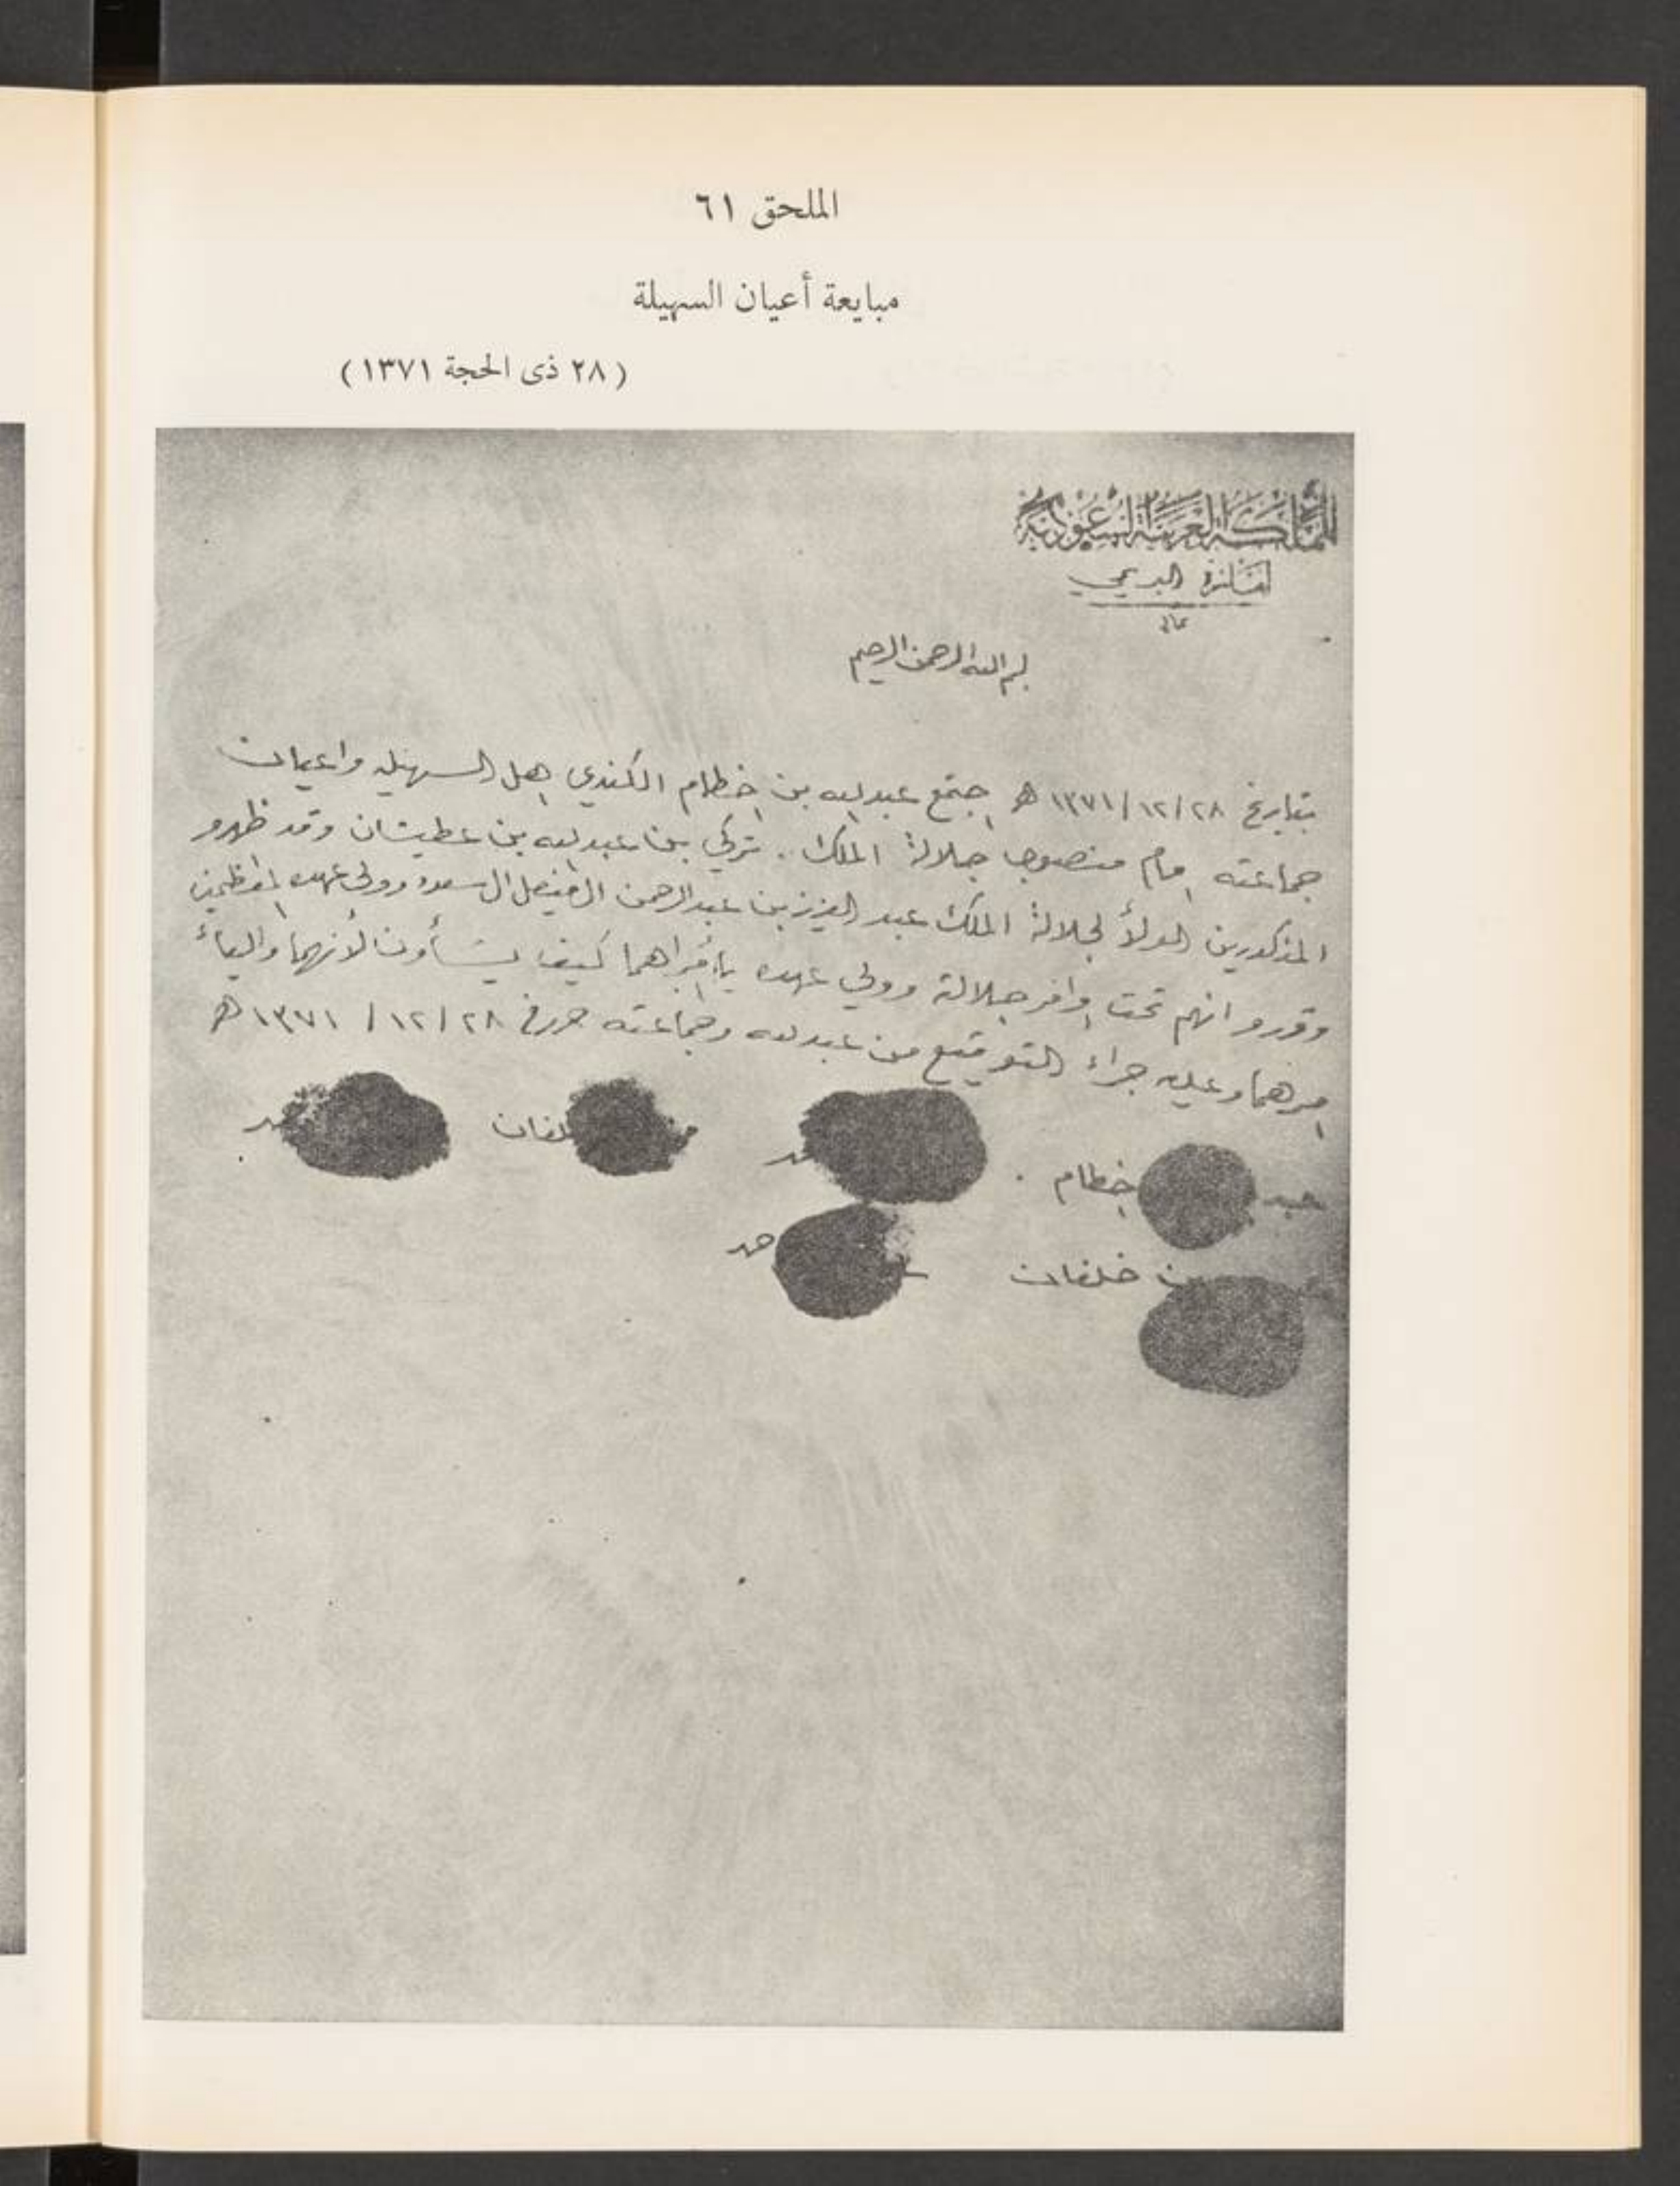 الملحق ٦١
مبايعة أعيان السهيلة
(٢٨ ذى الحجة ١٣٧١)
المملكة العربية السعودية
البريمي
بسم الله الرحمن الرحيم
بتاريخ ٢٨/١٢/١٣٧١ هـ اجتمع عبدالله بن خطام الكندي اهل السهيله واعيان
جماعته امام منصوب جلالة الملك . تركي بن عبدالله بن عطيشان وقد ظهرو
المذكورين الولأ لجلالة الملك عبد العزيز بن عبدالرحمن الفيصل ال سعود وولي عهده المعظمين
وقررو انهم تحت اوامر جلالة وولي عهده كيف يشأون لأنهما واليأ
امرهما وعليه جراء التوقيع من عبدالله وجماعته حرر في ٢٨/١٢/١٣٧١ هـ
خطام
بن خلفان